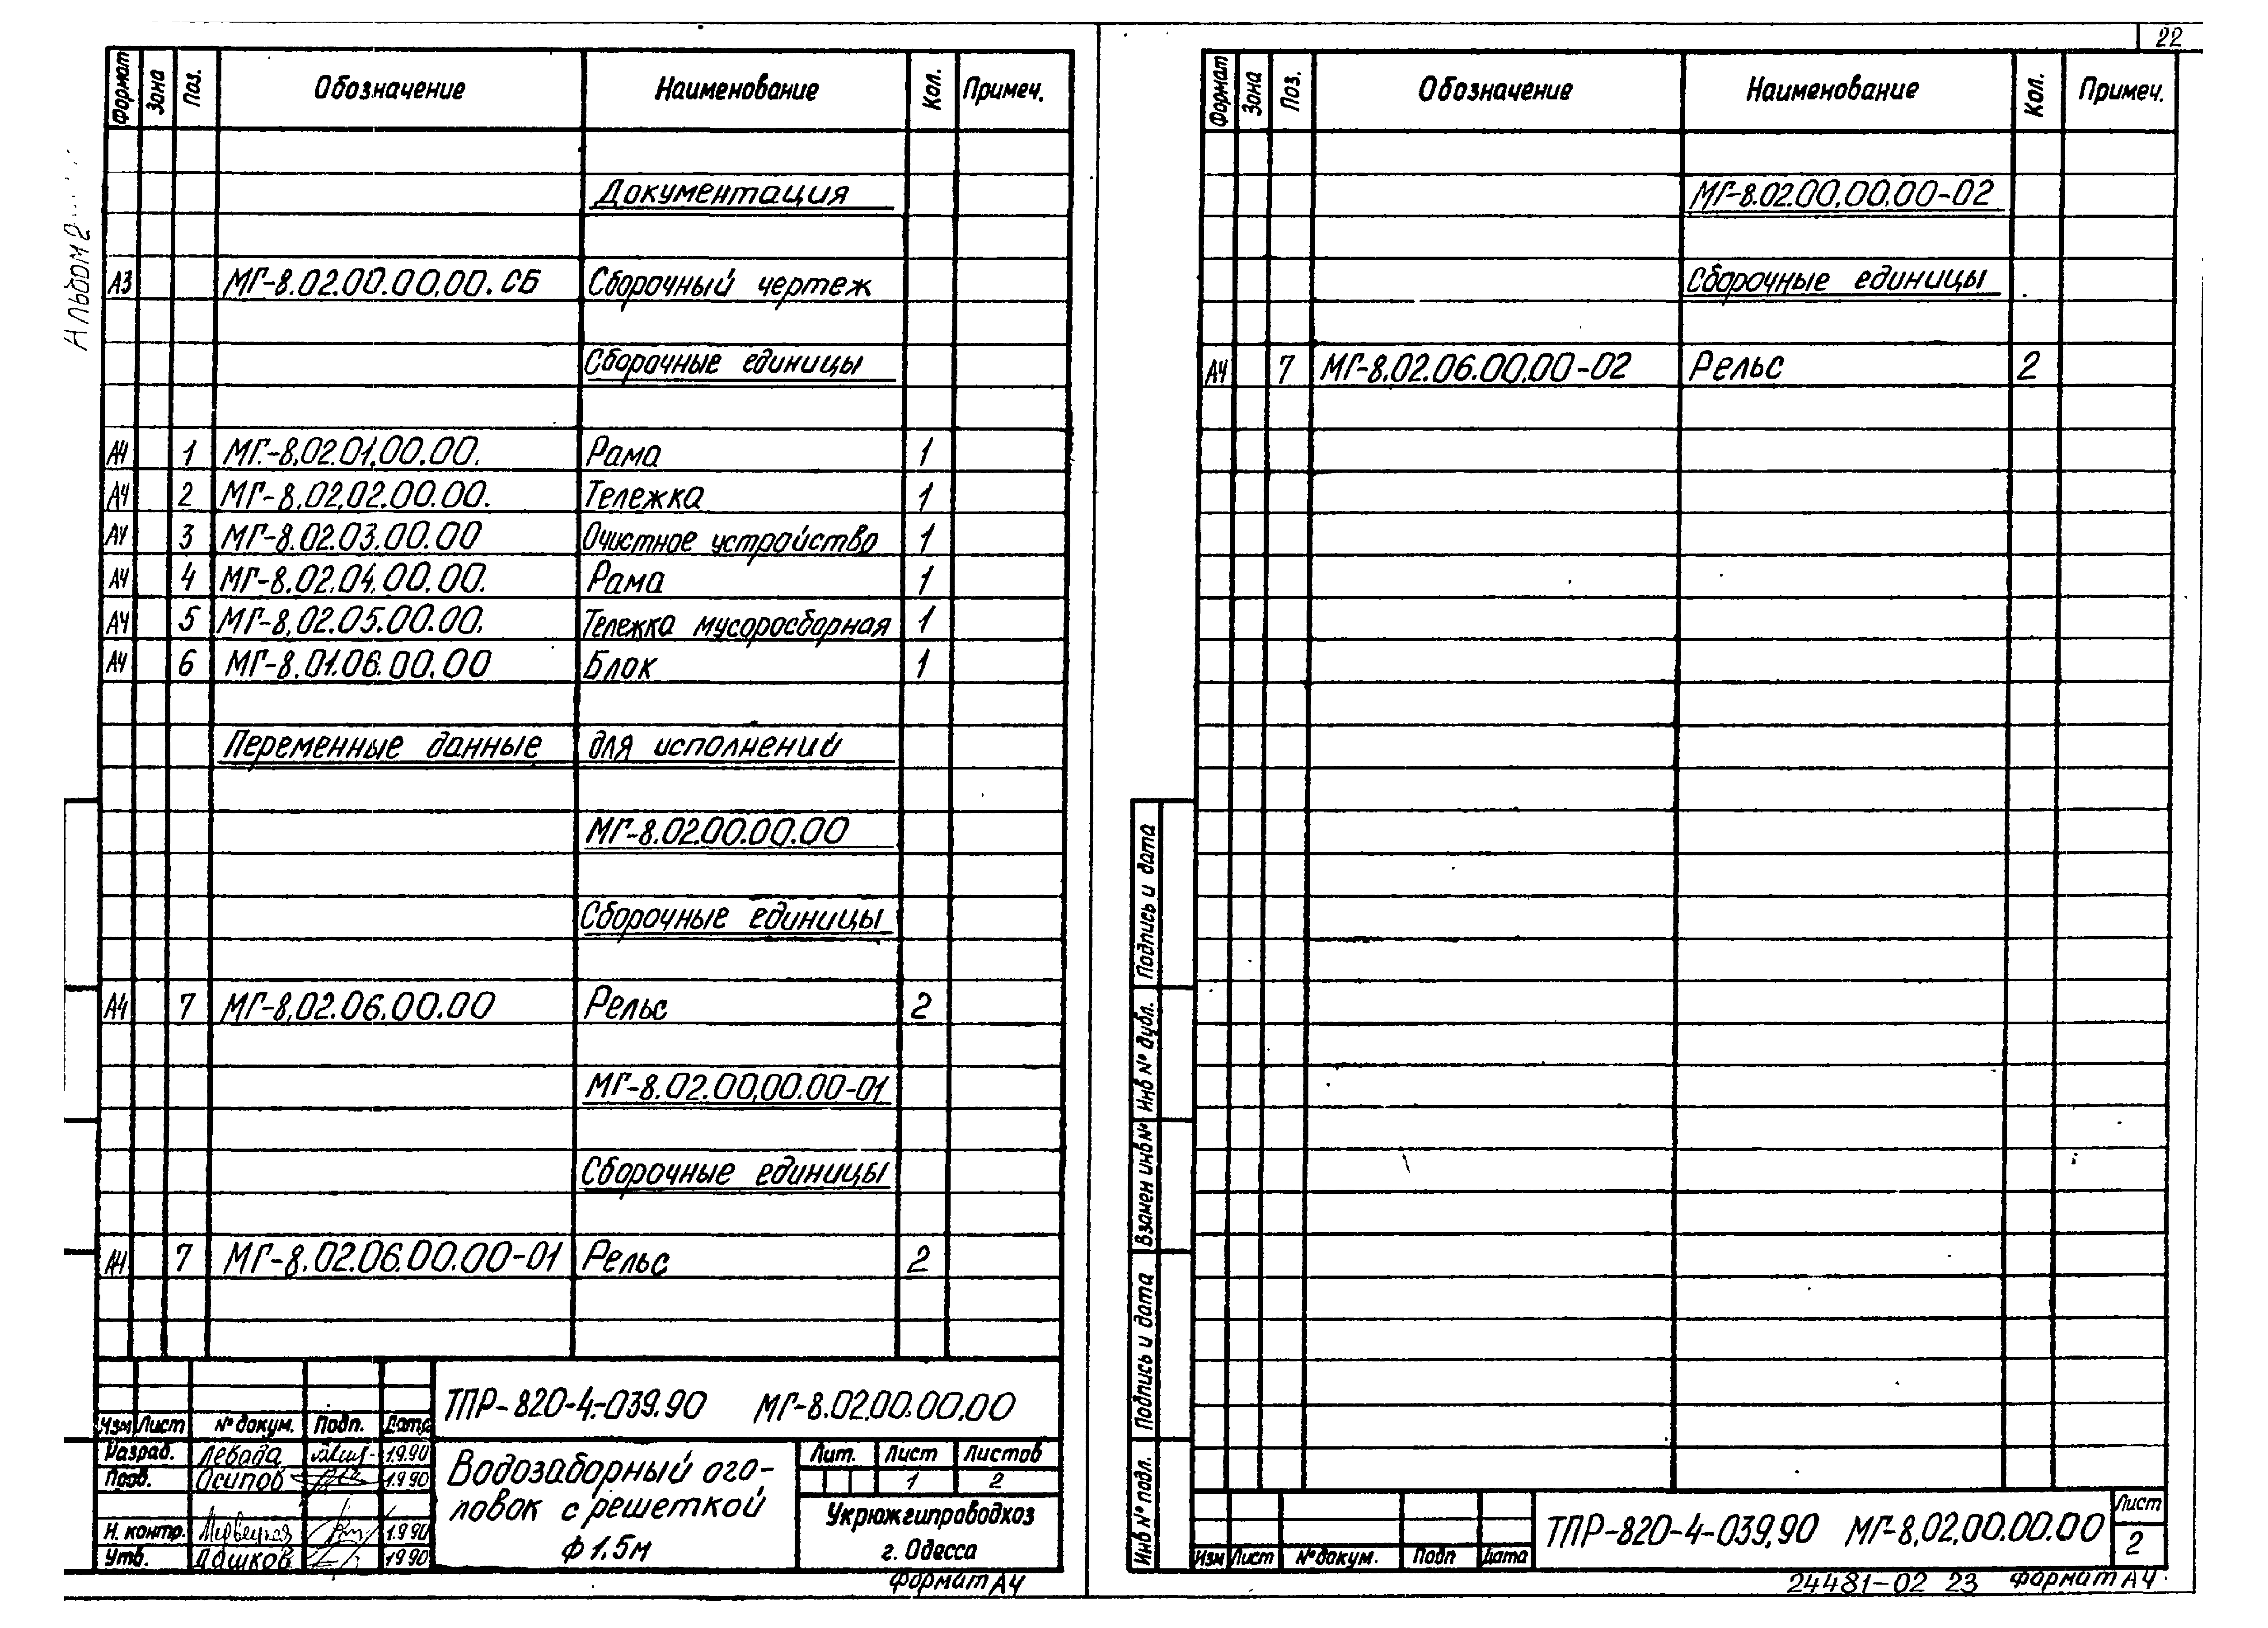 Альбом 2
Формат Зона Поз. Обозначение Наименование Кол. Примеч.
Документация
А3 МГ-8.02.00.00.00.СБ Сборочный чертеж
Сборочные единицы
А4 1 МГ-8.02.01.00.00. Рама 1
А4 2 МГ-8.02.02.00.00. Тележка 1
А4 3 МГ-8.02.03.00.00 Очистное устройство 1
А4 4 МГ-8.02.04.00.00. Рама 1
А4 5 МГ-8.02.05.00.00. Тележка мусоросборная 1
А4 6 МГ-8.01.06.00.00 Блок 1
Переменные данные для исполнений
МГ-8.02.00.00.00
Сборочные единицы
А4 7 МГ-8.02.06.00.00 Рельс 2
МГ-8.02.00.00.00-01
Сборочные единицы
А4 7 МГ-8.02.06.00.00-01 Рельс 2
ТПР-820-4-039.90 МГ-8.02.00.00.00
Изм Лист № докум. Подп. Дата
Разраб. Левада 1.9.90
Пров. Осипов 1.9.90
Н. контр. 1.9.90
Утв. Дашков 1990
Водозаборный ого-
ловок с решеткой
ф 1,5м
Лит. Лист Листов
1 2
Укрюжгипроводхоз
г. Одесса
Формат А4
22
Формат Зона Поз. Обозначение Наименование Кол. Примеч.
МГ-8.02.00.00.00-02
Сборочные единицы
А4 7 МГ-8.02.06.00.00-02 Рельс 2
Подпись и дата
Инв № дубл.
Взамен инв №
Подпись и дата
Инв № подл.
Изм Лист № докум. Подп Дата
ТПР-820-4-039.90 МГ-8.02.00.00.00
Лист
2
24481-02 23 Формат А4